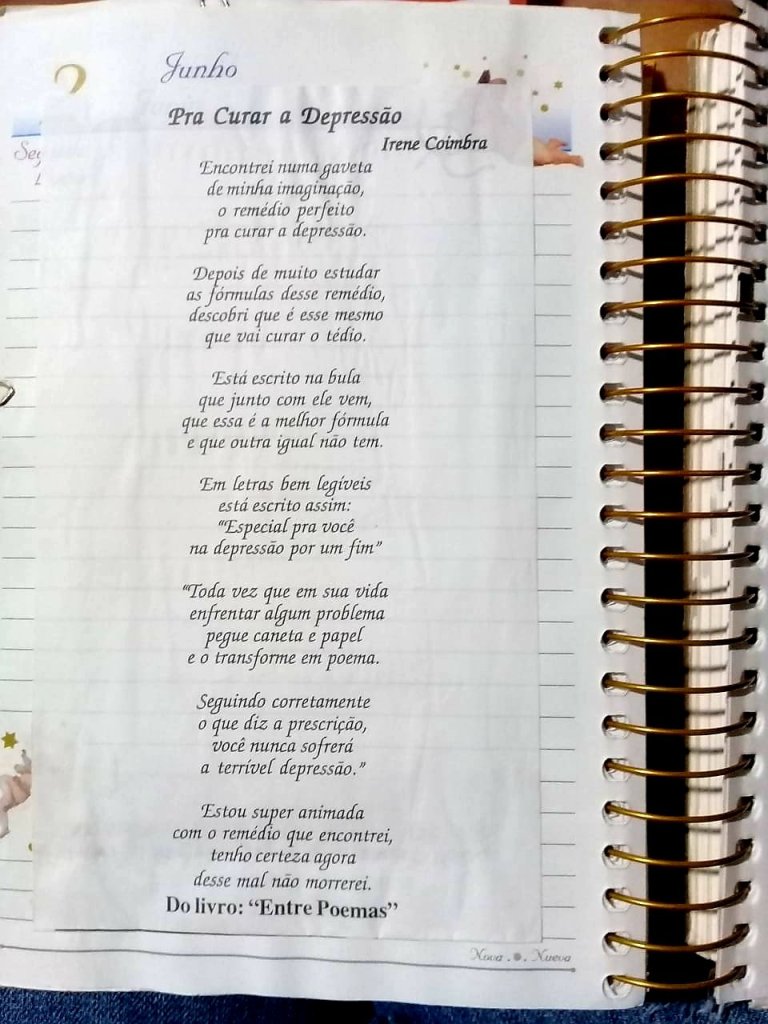 2
Junho
Pra Curar a Depressão
Irene Coimbra
Encontrei numa gaveta
de minha imaginação,
o remédio perfeito
pra curar a depressão.
Depois de muito estudar
as fórmulas desse remédio,
descobri que é esse mesmo
que vai curar o tédio.
Está escrito na bula
que junto com ele vem,
que essa é a melhor fórmula
e que outra igual não tem.
Em letras bem legíveis
está escrito assim:
“Especial pra você
na depressão por um fim”
“Toda vez que em sua vida
enfrentar algum problema
pegue caneta e papel
e o transforme em poema.
Seguindo corretamente
o que diz a prescrição,
você nunca sofrerá
a terrível depressão.”
Estou super animada
com o remédio que encontrei,
tenho certeza agora
desse mal não morrerei.
Do livro: “Entre Poemas”
Nova . Nueva